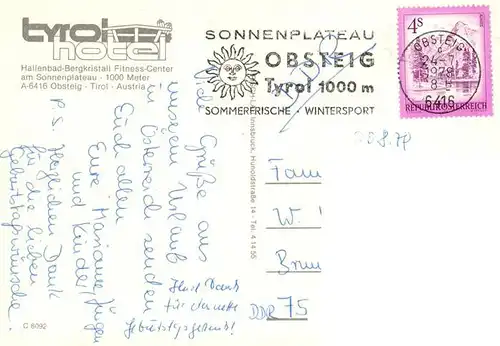 tyrol
hotel
Hallenbad-Bergkristall Fitness-Center
am Sonnenplateau - 1000 Meter
A-6416 Obsteig - Tirol - Austria
SONNENPLATEAU
OBSTEIG
Tyrol 1000 m
SOMMERFRISCHE · WINTERSPORT
4 S
OBSTEIG
1978
6416
REPUBLIK ÖSTERREICH
Grüße aus
unserem Urlaub
in Österreich senden
Euch allen
Eure Marianne, Jürgen
und Kinder,
P.S. Herzlichen Dank
für die lieben
Geburtstagswünsche.
Innsbruck, Hunoldstraße 14 - Tel. 4 14 55
Fam
W.
DDR 75
Dank
für das nette
C 6092